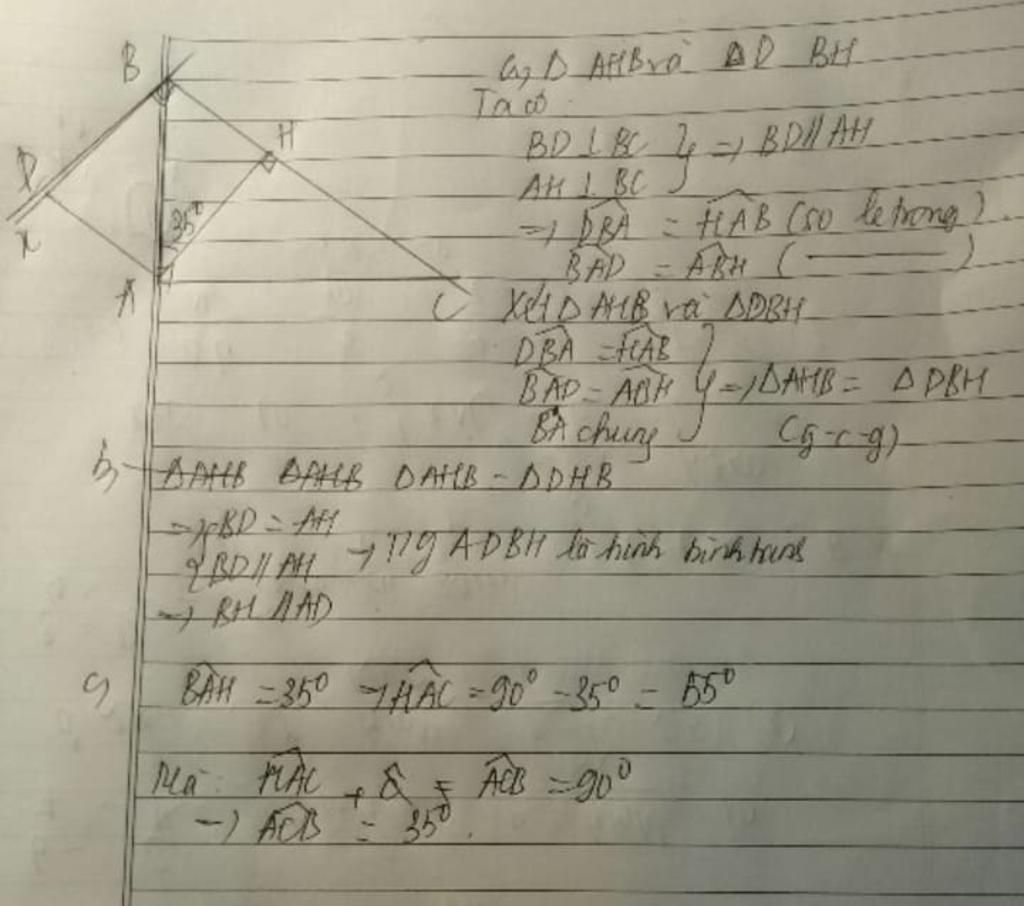 B
H
D
x
35°
A
C
a, Δ AHB và ΔD BH
Ta có:
BD ⊥ BC } => BD // AH
AH ⊥ BC
=> DBA = HAB (so le trong)
BAD = ABH ( ——— )
Xét Δ AHB và ΔDBH
DBA = HAB
BAD = ABH } => ΔAHB = ΔDBH
BA chung (g-c-g)
b, ΔAHB ΔAHB ΔAHB = ΔDHB
=> { BD = AH
{ BD // AH → ADBH là hình bình hành
→ BH // AD
c, BAH = 35° → HAC = 90° - 35° = 55°
Mà: HAC + = ACB = 90°
→ ACB = 35°.